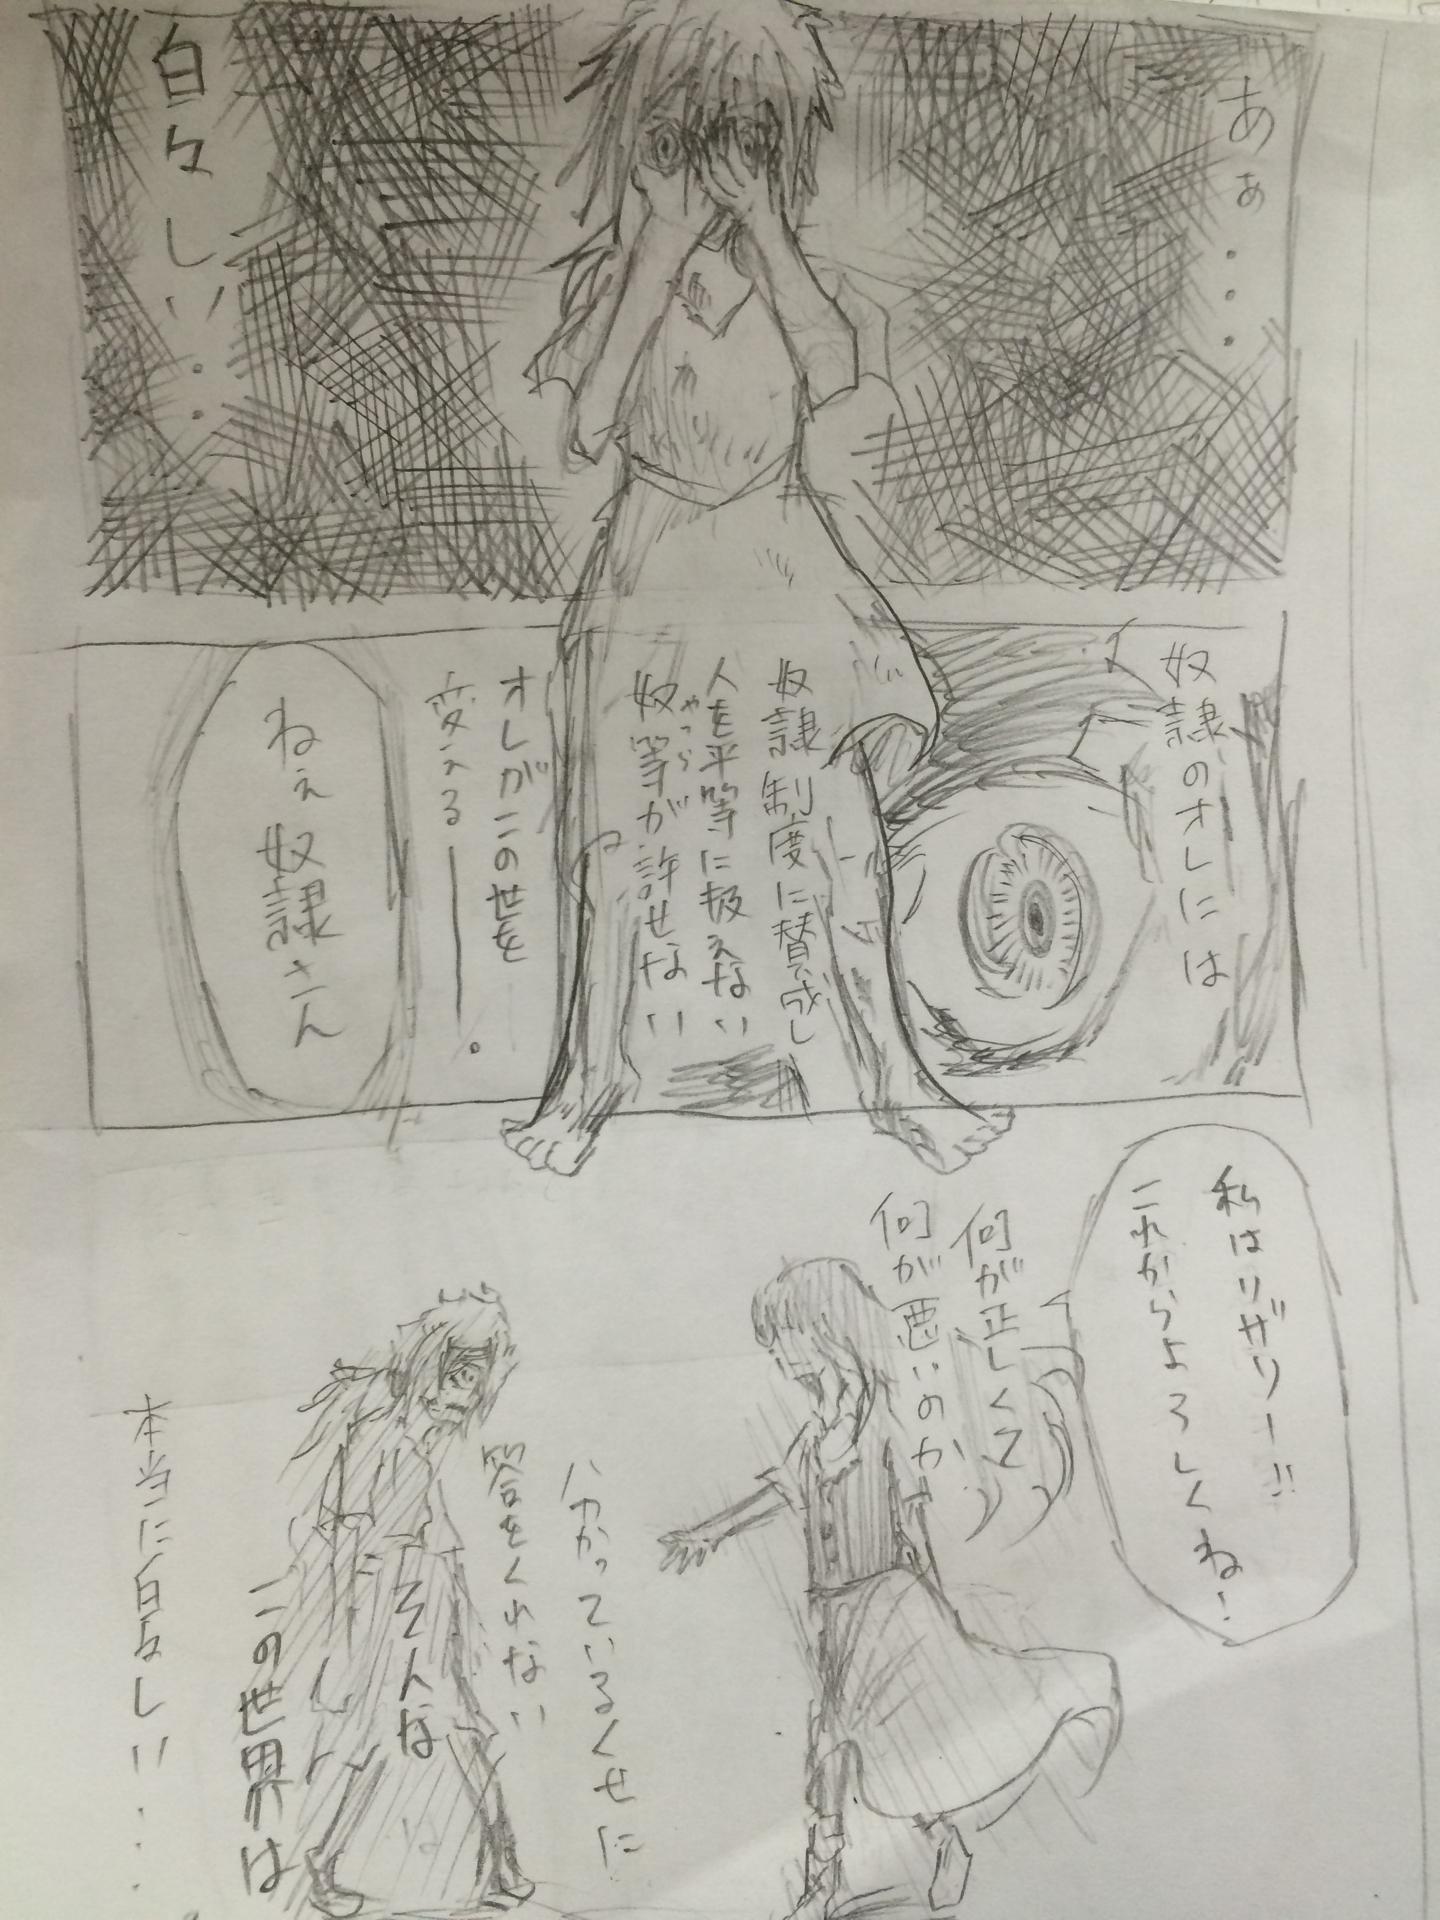 あぁ...
白々しい...
奴隷のオレには
奴隷制度に賛成し
人を平等に扱えない
奴等が許せない
やつら
オレがこの世を
変える——。
ねぇ奴隷さん
私はリザリー!!
これからよろしくね!
何が正しくて
何が悪いのか
分かっているくせに
答をくれない
そんな
この世界は
本当に白々しい...